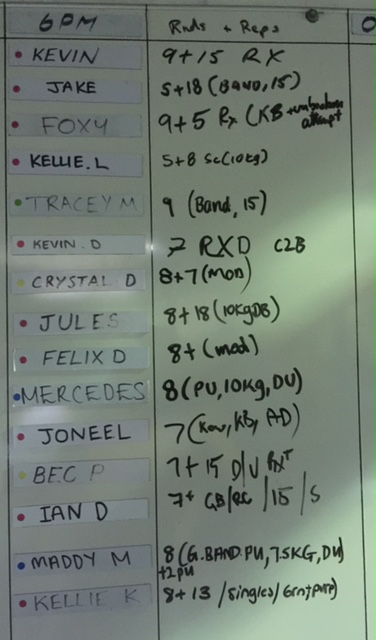 6PM Rnds + Reps
KEVIN 9+15 RX
JAKE 5+18 (Band, 15)
FOXY 9+5 Rx (KB + unbroken attempt
KELLIE.L 5+8 Sc(10kg)
TRACEY M 9 (Band, 15)
KEVIN.D 7 RXD C2B
CRYSTAL D 8+7 (Mod)
JULES 8+18 (10KgDB)
FELIX D 8+ (mod)
MERCEDES 8 (PU, 10Kg, DU)
JONEEL 7 (KB, AD)
BEC P 7+15 D/U RX
IAN D 7+ /15 / S
MADDY M 8 (G.BAND.PU, 7.5KG, DU)
+2PU
KELLIE K 8+13 /singles/Grn+purp)